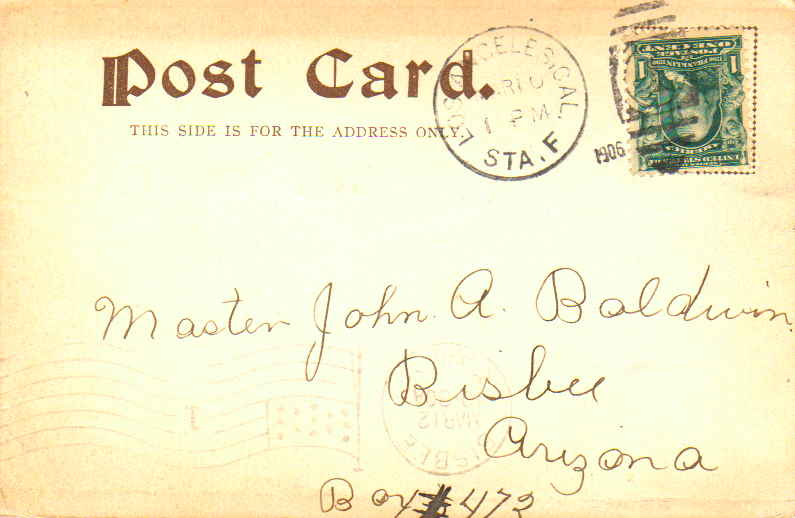 Post Card.
THIS SIDE IS FOR THE ADDRESS ONLY.
LOS ANGELES, CAL.
MAR 10
1 PM
STA. F
1906
POSTAGE
ONE CENT
1 1
Master John A. Baldwin
Bisbee
Arizona
Box # 472
BISBEE
MAR 12
1